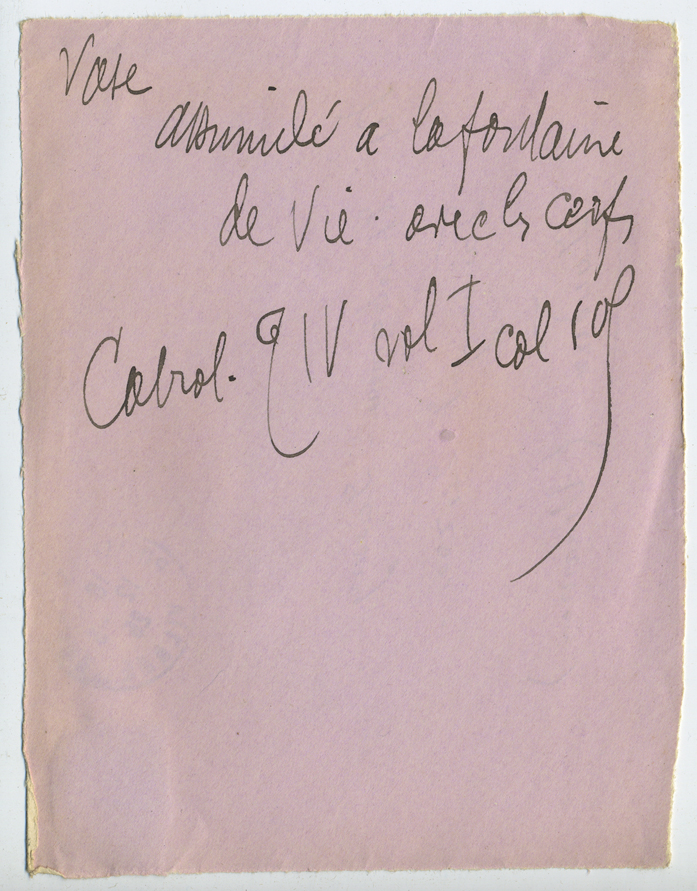 Vase
assimilé a la fontaine
de Vie. avec les cerfs
Cabrol. T IV vol I col 109